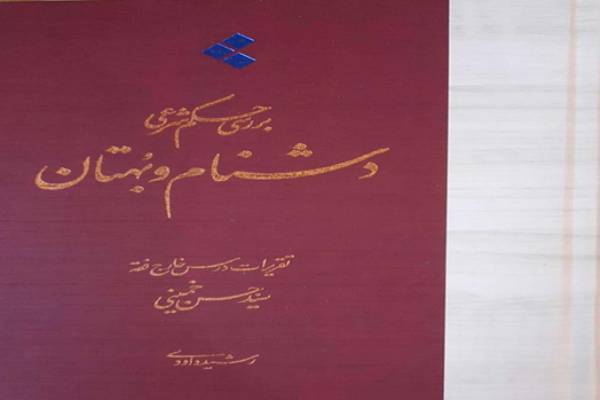 بررسی حکم شرعی
دشنام و بُهتان
تقریرات درس خارج فقه
سید حسن خمینی
رشید داودی